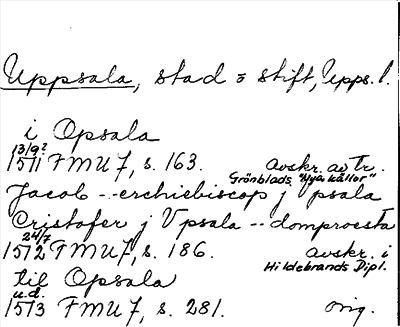 Uppsala, stad o stift, Upps. l.
i Opsala
13/9?
1511 FMU 7, s. 163. avskr. av tr.
Grönblads "Nya källor"
Jacob -- erchiebiscop j Vpsala
Cristofer j Vpsala -- domproesta
24/7
1512 FMU 7, s. 186. avskr. i
Hildebrands Dipl.
til Opsala
u.d.
1513 FMU 7, s. 281. orig.